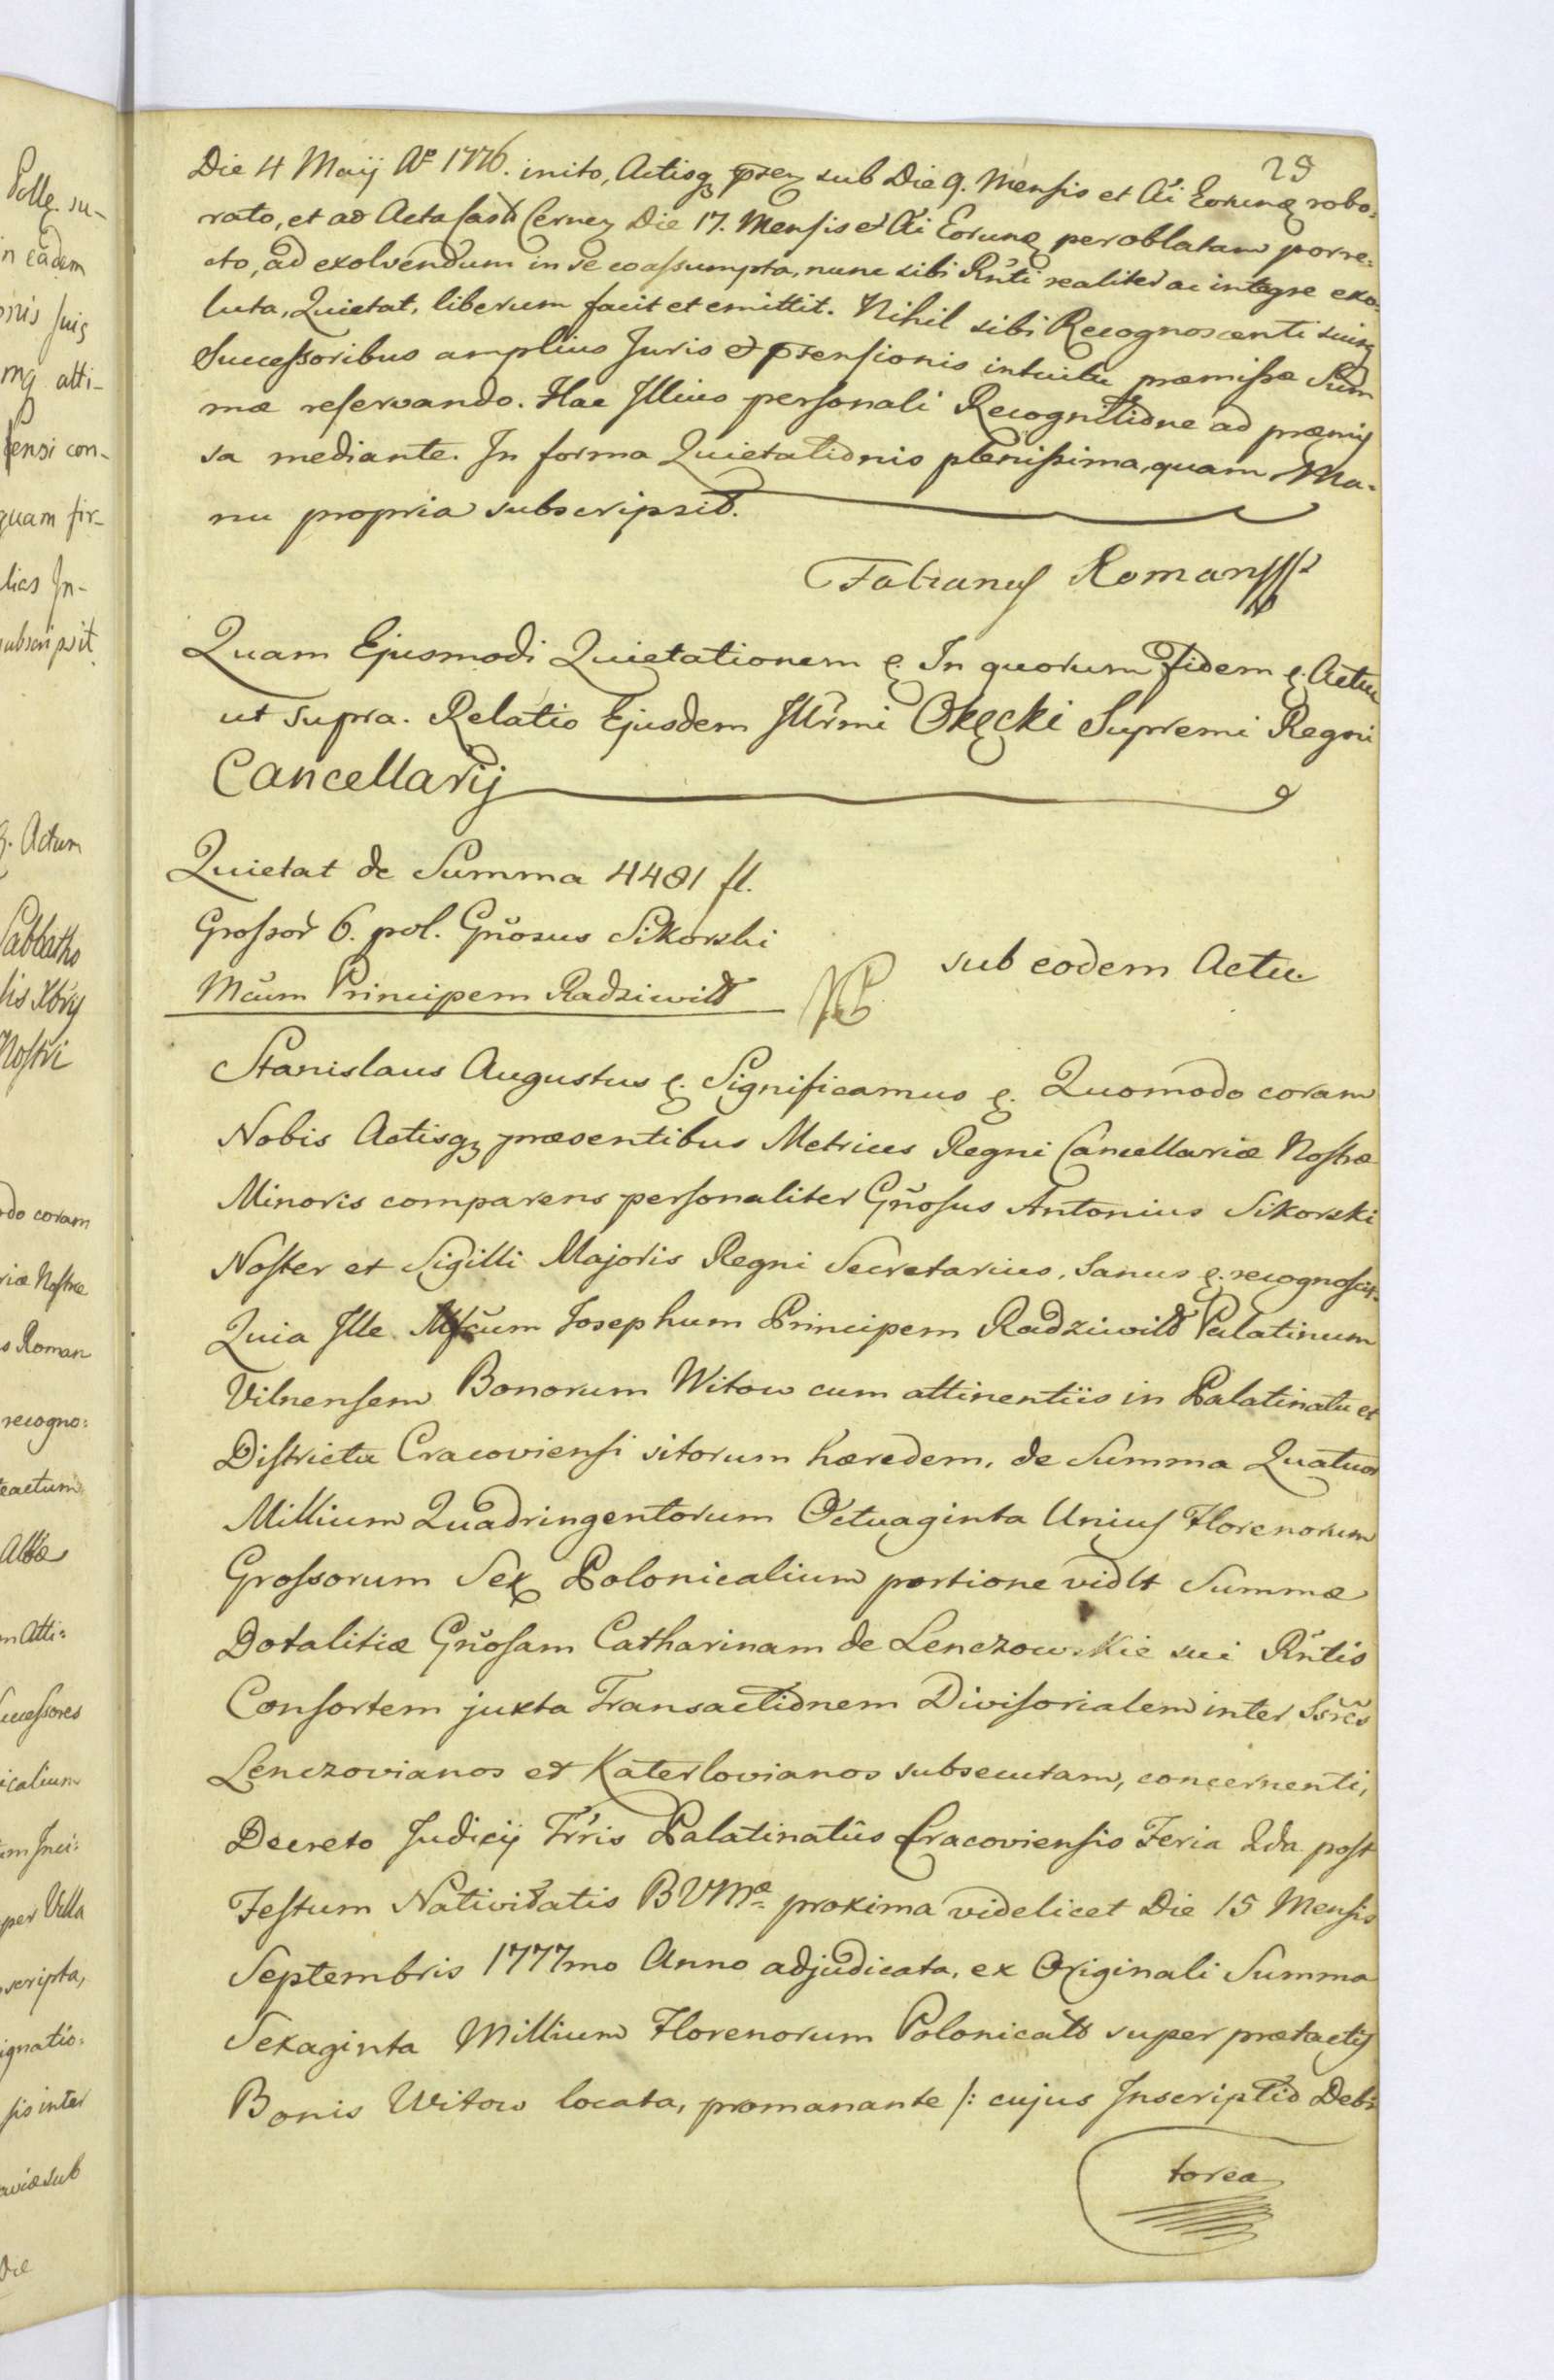 Polle. su-
n eadem
onis suis
mq atti-
sensi con-
quam fir-
lias In-
subscripsit
Actum
Sabbatho
lis Xbris
Nostri
odo coram
riæ Nostræ
s Roman
recogno:
Atti:
uccessores
icalium
per Villa
scripta,
ignatio:
sio inter
aviæ sub
Die
29
Die 4 Maij Aº 1776. inito, Actisq præs sub Die 9. Mensis et Ãi Eorunq robo:
rato, et ad Acta Castr Cernen Die 17. Mensis et Ãi Eorunq per oblatam porre:
cto, ad exolvendum in se coassumpta, nunc sibi Rñti realiter ac integre exo:
luta, Quietat, liberum facit et emittit. Nihil sibi Recognoscenti suisq
Successoribus amplius Juris et prætensionis intuitu præmissæ Sum
mæ reservando. Hac Illius personali Recognitione ad præmis
sa mediante. In forma Quietationis plenissima, quam Ma-
nu propria subscripsit.
Fabianus Roman
Quam Ejusmodi Quietationem &. In quorum Fidem &. Actu
ut supra. Relatio Ejusdem Illr̃mi Okęcki Supremi Regni
Cancellarij
Quietat de Summa 4481 fl.
Grossor 6. pol. Gñosus Sikorski
Mcũm Principem Radziwiłł
sub eodem Actu
Stanislaus Augustus &. Significamus &. Quomodo coram
Nobis Actisq præsentibus Metrices Regni Cancellariæ Nostræ
Minoris comparens personaliter Gñosus Antonius Sikorski
Noster et Sigilli Majoris Regni Secretarius, Sanus &. recognoscit.
Quia Ille Mcũm Josephum Principem Radziwiłł Palatinum
Vilnensem Bonorum Witow cum attinentiis in Palatinatu et
Districtu Cracoviensi sitorum hæredem, de Summa Quatuor
Millium Quadringentorum Octuaginta Unius Florenorum
Grossorum Sex Polonicalium portione vidlt Summæ
Dotalitiæ Gñosam Catharinam de Lenczowskie sui Rñtis
Consortem juxta Transactionem Divisorialem inter Ssrẽs
Lenczovianos et Katerlovianos subsecutam, concernenti,
Decreto Judicij Trris Palatinatûs Cracoviensis Feria 2da post
Festum Nativitatis BVMæ proxima videlicet Die 15 Mensis
Septembris 1777mo Anno adjudicata, ex Originali Summa
Sexaginta Millium Florenorum Polonicaľ super prætactis
Bonis Witow locata, promanante /: cujus Inscriptio Debi-
torea